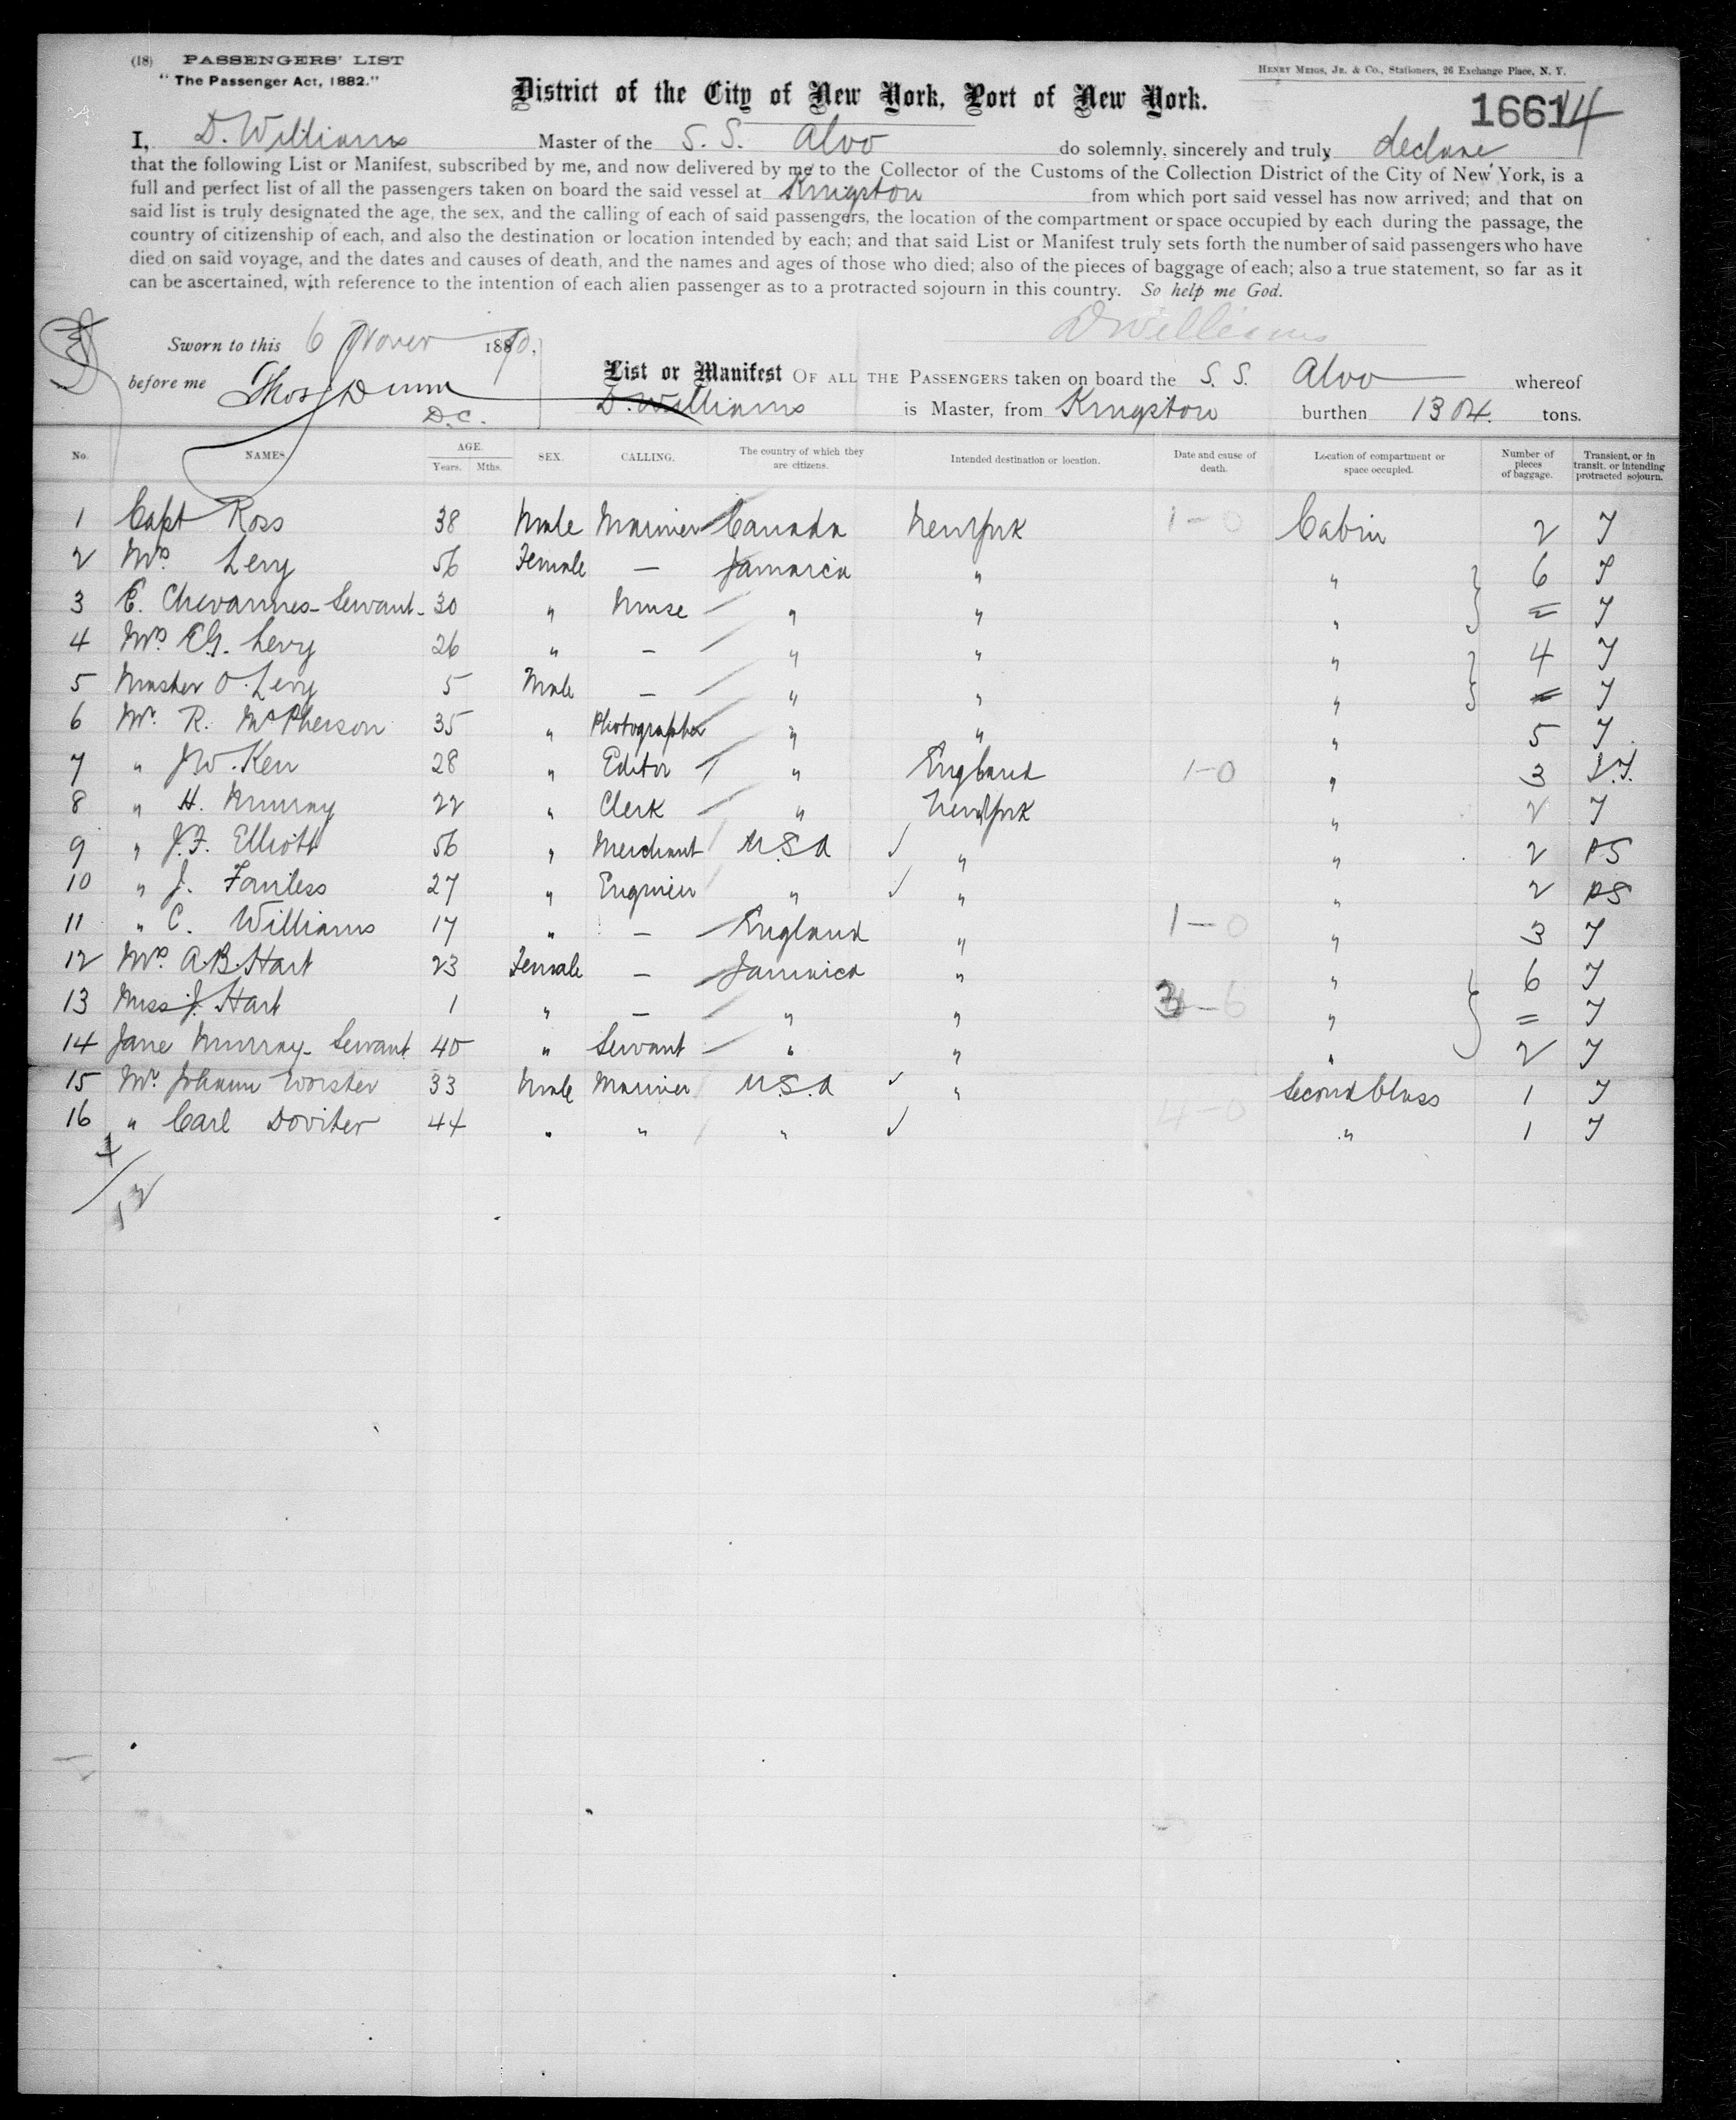 (18) PASSENGERS' LIST
"The Passenger Act, 1882."
HENRY MEIGS, JR. & CO., Stationers, 26 Exchange Place, N. Y.
District of the City of New York, Port of New York.
16614
I, D. Williams Master of the S. S. Alvo do solemnly, sincerely and truly declare
that the following List or Manifest, subscribed by me, and now delivered by me to the Collector of the Customs of the Collection District of the City of New York, is a
full and perfect list of all the passengers taken on board the said vessel at Kingston from which port said vessel has now arrived; and that on
said list is truly designated the age, the sex, and the calling of each of said passengers, the location of the compartment or space occupied by each during the passage, the
country of citizenship of each, and also the destination or location intended by each; and that said List or Manifest truly sets forth the number of said passengers who have
died on said voyage, and the dates and causes of death, and the names and ages of those who died; also of the pieces of baggage of each; also a true statement, so far as it
can be ascertained, with reference to the intention of each alien passenger as to a protracted sojourn in this country. So help me God.
DWilliams
Sworn to this 6 Nover 1890,
before me Thos Dunn
D.C.
List or Manifest OF ALL THE PASSENGERS taken on board the S. S. Alvo whereof
D. Williams is Master, from Kingston burthen 1304 tons.
No. NAMES. AGE. Years. Mths. SEX. CALLING. The country of which they are citizens. Intended destination or location. Date and cause of death. Location of compartment or space occupied. Number of pieces of baggage. Transient, or in transit, or intending protracted sojourn.
1 Capt Ross 38 Male Mariner Canada New York 1-0 Cabin 2 T
2 Mrs Levy 56 Female — Jamaica " " 6 T
3 E. Chevannes - Servant - 30 " Nurse " " " = T
4 Mrs EG. Levy 26 " — " " " 4 T
5 Master O. Levy 5 Male — " " " = T
6 Mr. R. McPherson 35 " Photographer " " " 5 T
7 " J.W. Kerr 28 " Editor " England 1-0 " 3 I.T.
8 " H. Murray 22 " Clerk " New York " 2 T
9 " J.F. Elliott 56 " Merchant U.S.A " " 2 PS
10 " J. Fairless 27 " Engineer " " " 2 PS
11 " C. Williams 17 " — England " 1-0 " 3 T
12 Mrs A.B. Hart 23 Female — Jamaica " " 6 T
13 Miss J. Hart 1 " — " " 3-6 " = T
14 Jane Murray - Servant 40 " Servant " " " 2 T
15 Mr. Johann Worster 33 Male Mariner U.S.A " Second Class 1 T
16 " Carl Doviter 44 " " " 4-0 " 1 T